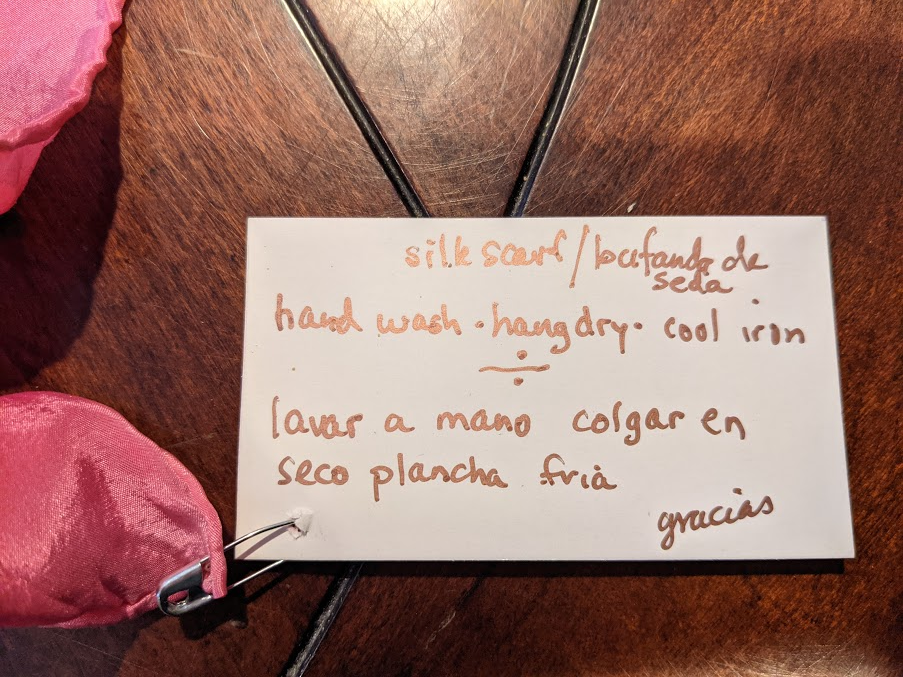 silk scarf/bufanda de
seda
hand wash · hang dry · cool iron
lavar a mano colgar en
seco plancha fria
gracias